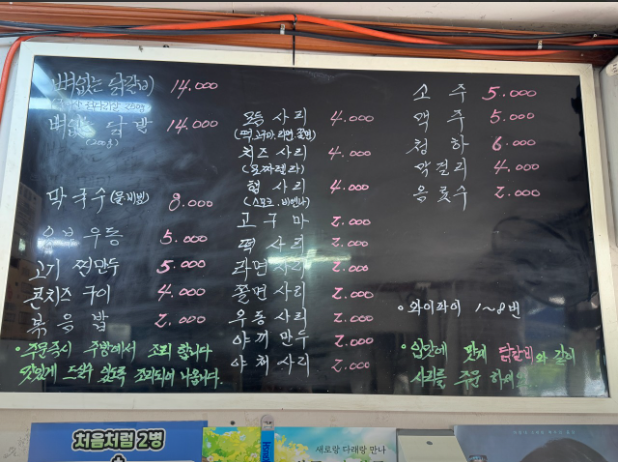 뼈없는 닭갈비 14.000
뼈없는 닭발 14.000
(200g)
막국수(물.비빔) 8.000
유부우동 5.000
고기 찐만두 5.000
콘치즈 구이 4.000
볶음밥 2.000
• 주문즉시 주방에서 조리 합니다
맛있게 드실수 있도록 조리되어 나옵니다.
모듬 사리 4.000
(떡.고구마.라면.쫄면)
치즈 사리 4.000
(모짜렐라)
햄 사리 4.000
(스모크.비엔나)
고구마 2.000
떡 사리 2.000
라면사리 2.000
쫄면사리 2.000
우동사리 2.000
야끼 만두 2.000
야채 사리 2.000
소주 5.000
맥주 5.000
청하 6.000
막걸리 4.000
음료수 2.000
• 와이파이 1~8번
• 입맛에 맞게 닭갈비와 같이
사리를 주문 하세요
처음처럼 2병
새로랑 다래랑 만나